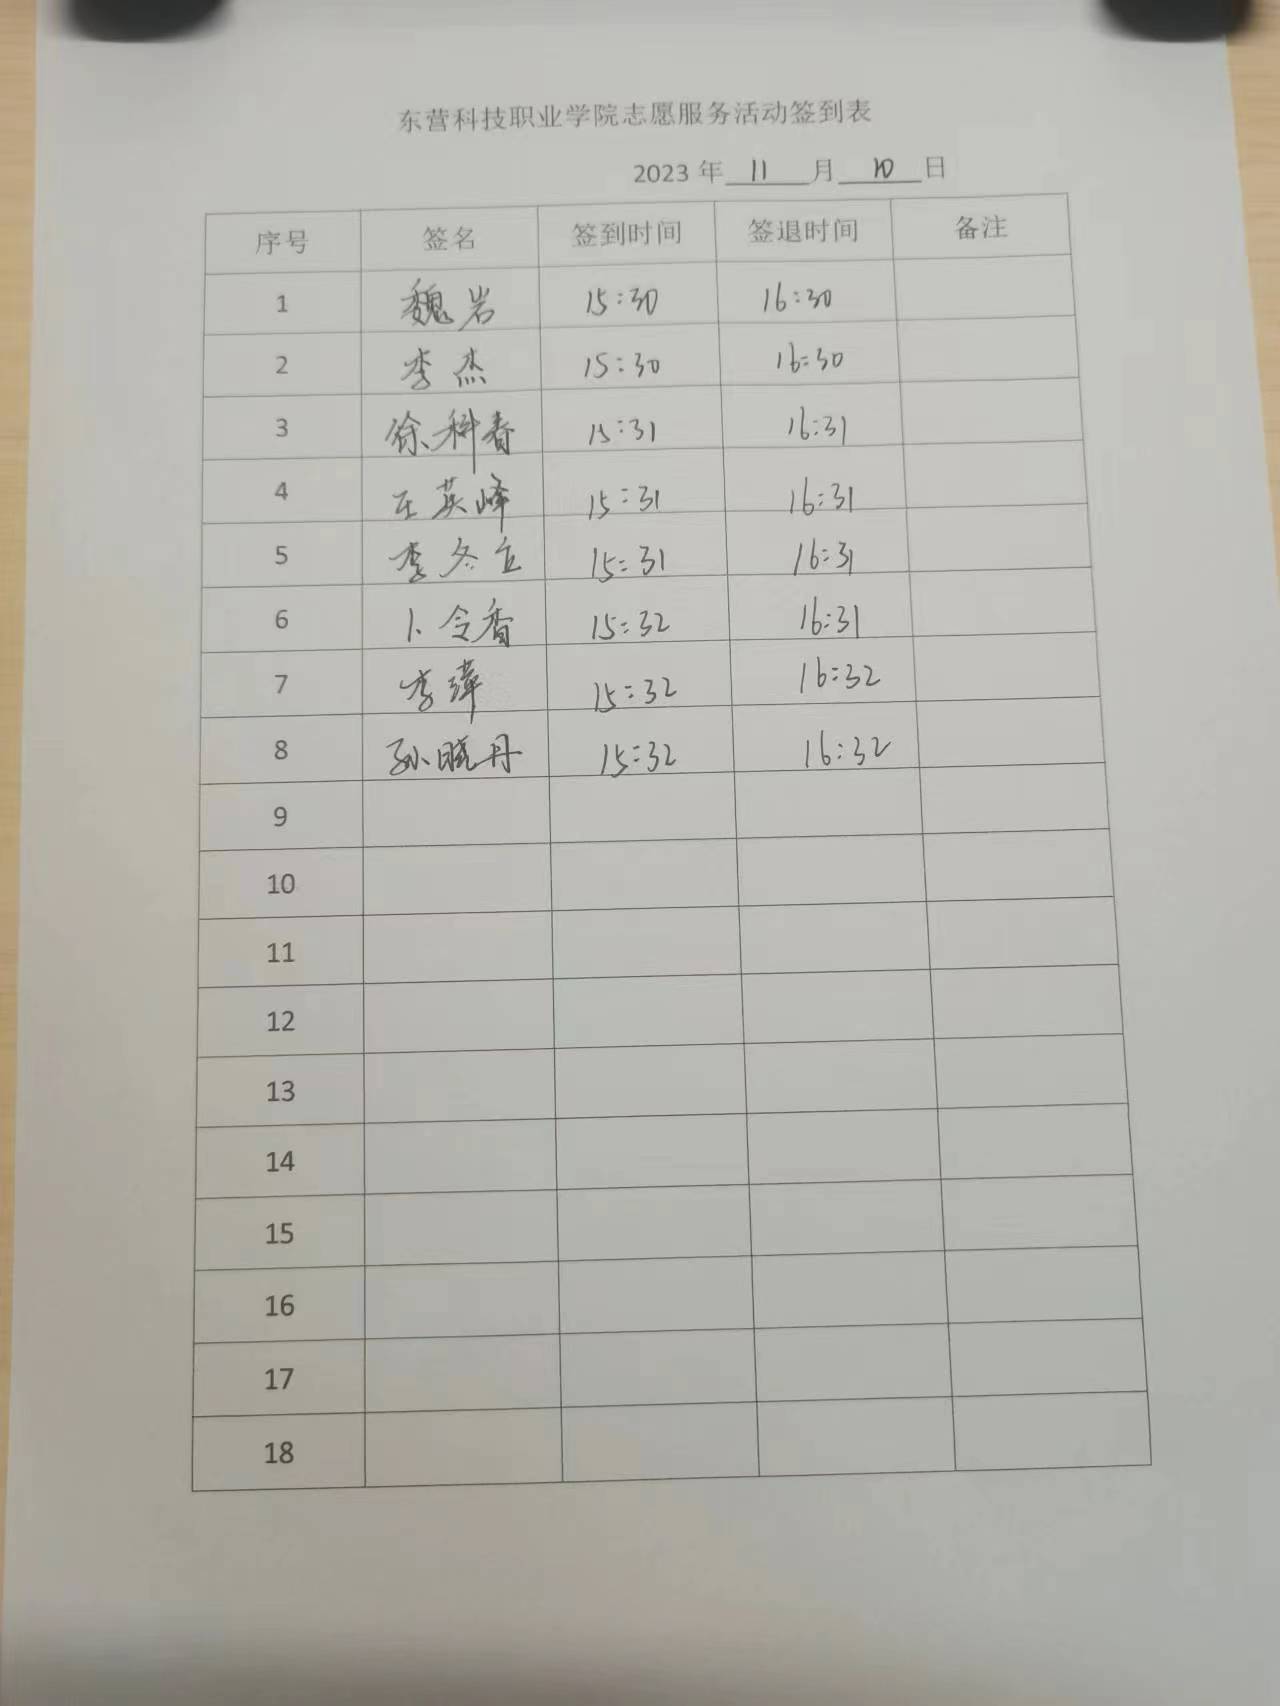 东营科技职业学院志愿服务活动签到表
2023 年 11 月 10 日
序号 签名 签到时间 签退时间 备注
1 魏岩 15:30 16:30
2 李杰 15:30 16:30
3 徐科春 15:31 16:31
4 王英峰 15:31 16:31
5 李冬立 15:31 16:31
6 卜令香 15:32 16:31
7 李 15:32 16:32
8 孙晓丹 15:32 16:32
9
10
11
12
13
14
15
16
17
18